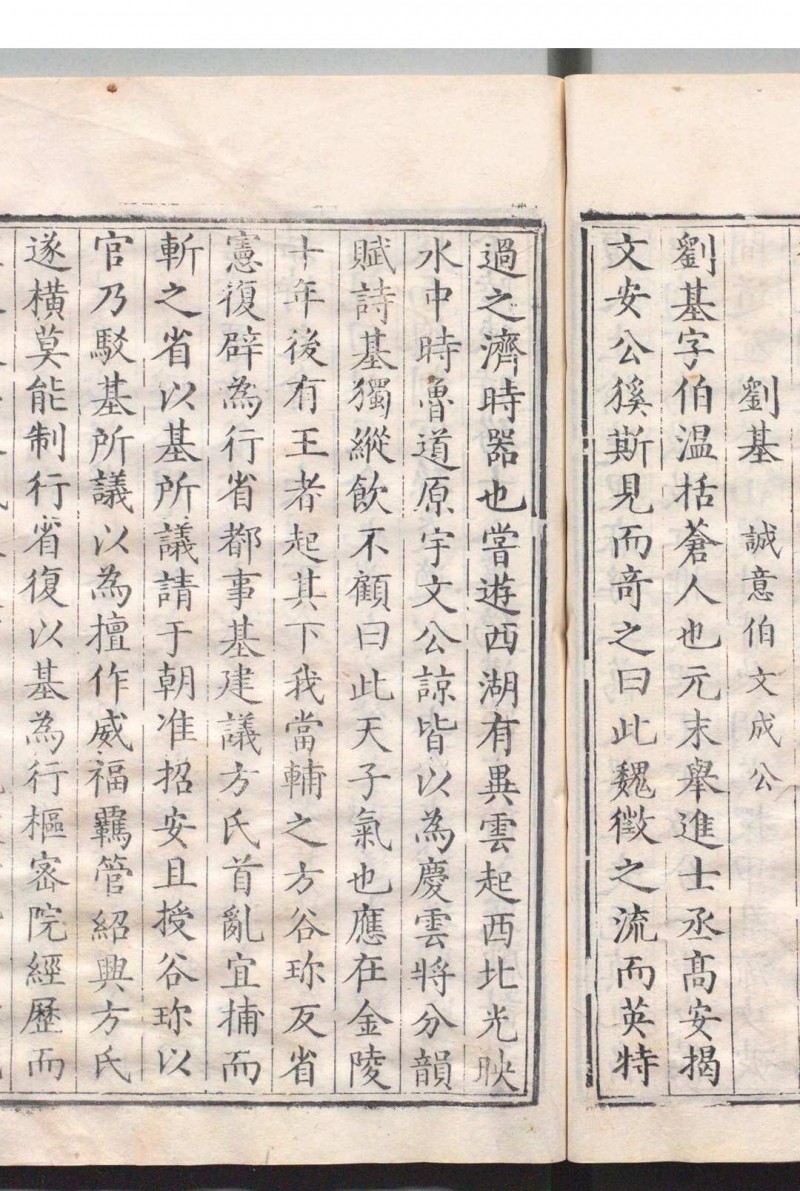 劉基 誠意伯文成公
劉基字伯溫括蒼人也元末舉進士丞高安揭
文安公徯斯見而竒之曰此魏徵之流而英特
過之濟時器也嘗遊西湖有異雲起西北光映
水中時魯道原宇文公諒皆以為慶雲將分韻
賦詩基獨縱飲不顧曰此天子氣也應在金陵
十年後有王者起其下我當輔之方谷珎反省
憲復辟為行省都事基建議方氏首亂宜捕而
斬之省以基所議請于朝准招安且授谷珎以
官乃駁基所議以為擅作威福羈管紹興方氏
遂橫莫能制行省復以基為行樞密院經歷而